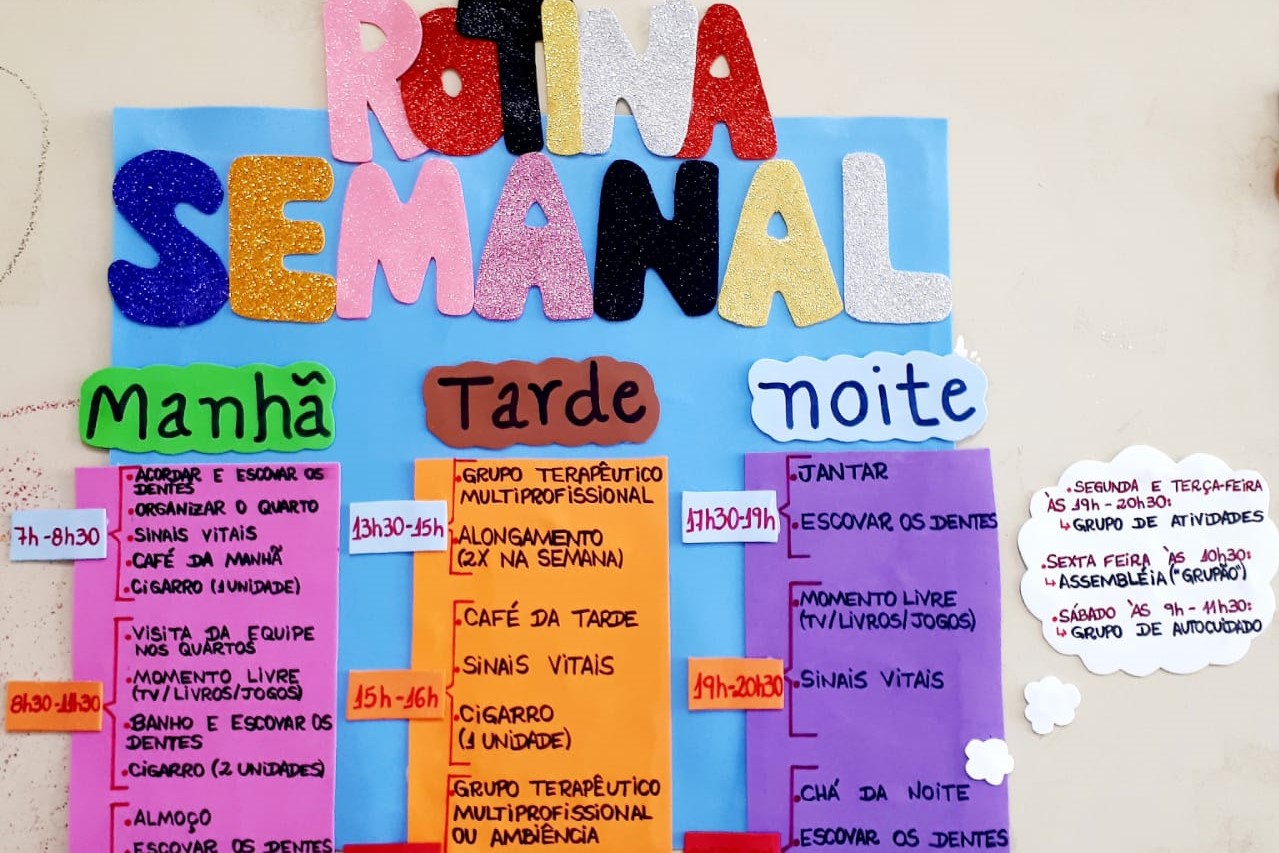 ROTINA
SEMANAL
Manhã
7h-8h30
•ACORDAR E ESCOVAR OS
DENTES
•ORGANIZAR O QUARTO
•SINAIS VITAIS
•CAFÉ DA MANHÃ
•CIGARRO (1 UNIDADE)
8h30-11h30
•VISITA DA EQUIPE
NOS QUARTOS
•MOMENTO LIVRE
(TV/LIVROS/JOGOS)
•BANHO E ESCOVAR OS
DENTES
•CIGARRO (2 UNIDADES)
•ALMOÇO
•ESCOVAR OS DENTES
Tarde
13h30-15h
•GRUPO TERAPÊUTICO
MULTIPROFISSIONAL
•ALONGAMENTO
(2X NA SEMANA)
15h-16h
•CAFÉ DA TARDE
•SINAIS VITAIS
•CIGARRO
(1 UNIDADE)
•GRUPO TERAPÊUTICO
MULTIPROFISSIONAL
OU AMBIÊNCIA
noite
17h30-19h
•JANTAR
•ESCOVAR OS DENTES
19h-20h30
•MOMENTO LIVRE
(TV/LIVROS/JOGOS)
•SINAIS VITAIS
•CHÁ DA NOITE
•ESCOVAR OS DENTES
•SEGUNDA E TERÇA-FEIRA
ÀS 19h-20h30:
↳GRUPO DE ATIVIDADES
•SEXTA FEIRA ÀS 10h30:
↳ASSEMBLÉIA ("GRUPÃO")
•SÁBADO ÀS 9h-11h30:
↳GRUPO DE AUTOCUIDADO